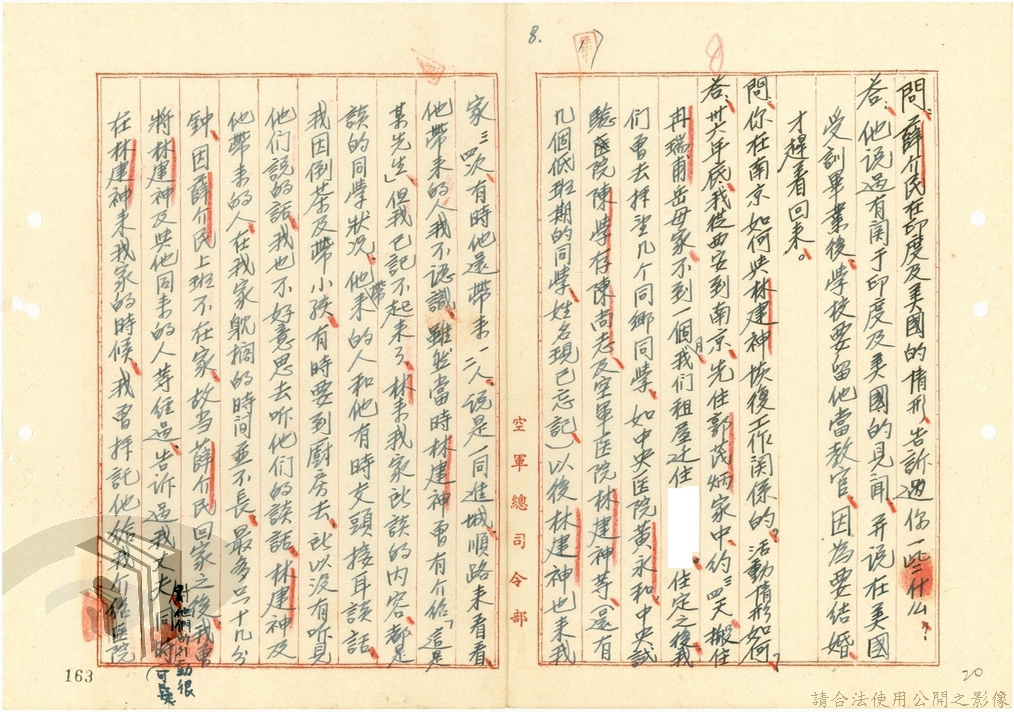 8.
8
問、薛介民在印度及美國的情形、告訴過你一些什么？
答、他說過有関于印度及美國的見聞、并說在美國
受訓畢業後、學校要留他當教官、因為要結婚
才趕着回来。
問、你在南京如何與林建神恢復工作関係的？活動情形如何？
答、卅六年底、我從西安到南京、先住郭茂炳家中、約三四天、搬住
冉瑞甫岳母家、不到一個月、我们租屋迁住　　住定之後、我
们曾去拜望几个同鄉同學、如中央医院黃永和、中央試
驗医院陳學存、陳尚志、及空軍医院林建神等、還有
几個低班期的同學、姓名現已忘記）以後林建神也来我
空軍總司令部
20
家三四次、有時他還帶来一二人、說是一同進城、順路来看看
他帶来的人我不認識、雖然當時林建神曾有介紹「這是
某先生」但我已記不起来了、林来我家所談的内容、都是
談的同學狀况、他帶来的人和他有時交頭接耳談話、
我因倒茶及帶小孩、有時要到厨房去、所以没有听見
他们說的話、我也不好意思去听他们的談話、林建神及
他帶来的人、在我家躭擱的時间並不長、最多只十几分
鐘、因薛介民上班不在家、故当薛介民回家之後、我曾
將林建神及與他同来的人等經過、告诉過我丈夫、同時
對他們的行動很可疑
在林建神来我家的時候、我曾拜託他給我介紹医院
163
請合法使用公開之影像